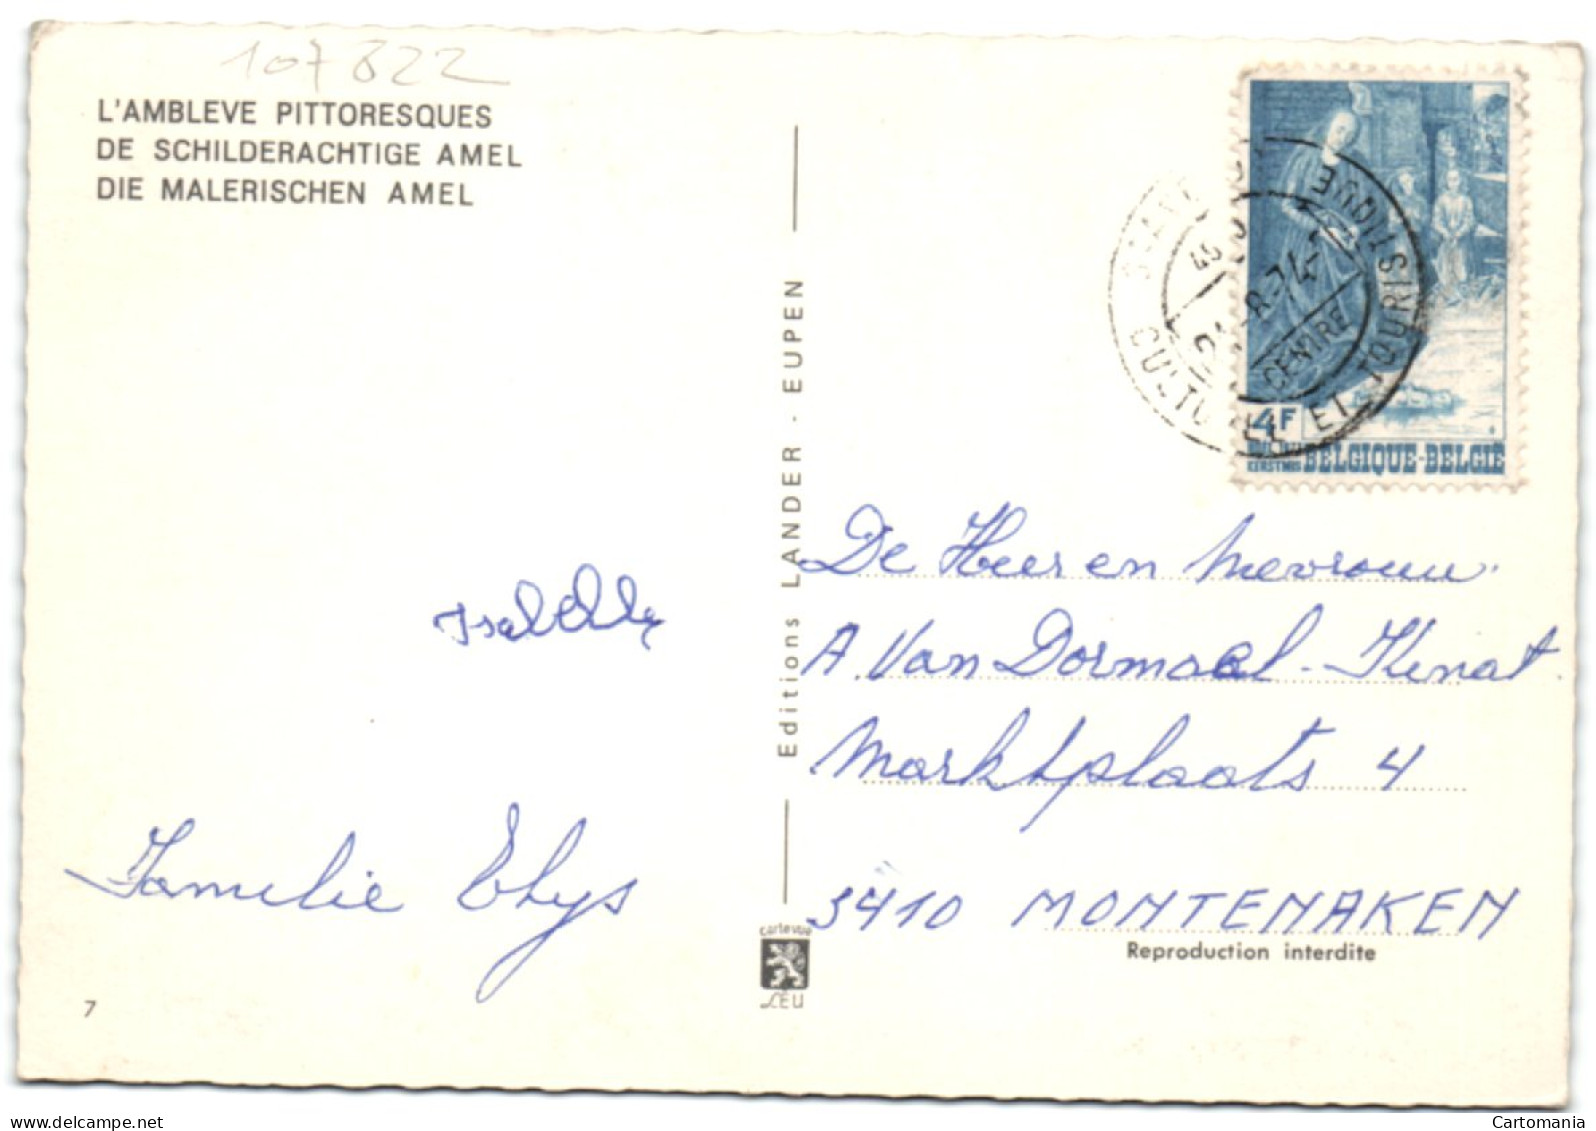 107822
L'AMBLEVE PITTORESQUES
DE SCHILDERACHTIGE AMEL
DIE MALERISCHEN AMEL
Familie Thys
7
Editions LANDER · EUPEN
cartevue
LEU
CULTUREL ET TOURISTIQUE
CENTRE
-8-74-
4F
KERSTMIS BELGIQUE-BELGIË
De Heer en Mevrouw
A. Van Dormaal-Kenat
Marktplaats 4
3410 MONTENAKEN
Reproduction interdite
Cartomania
https://www.delcampe.net